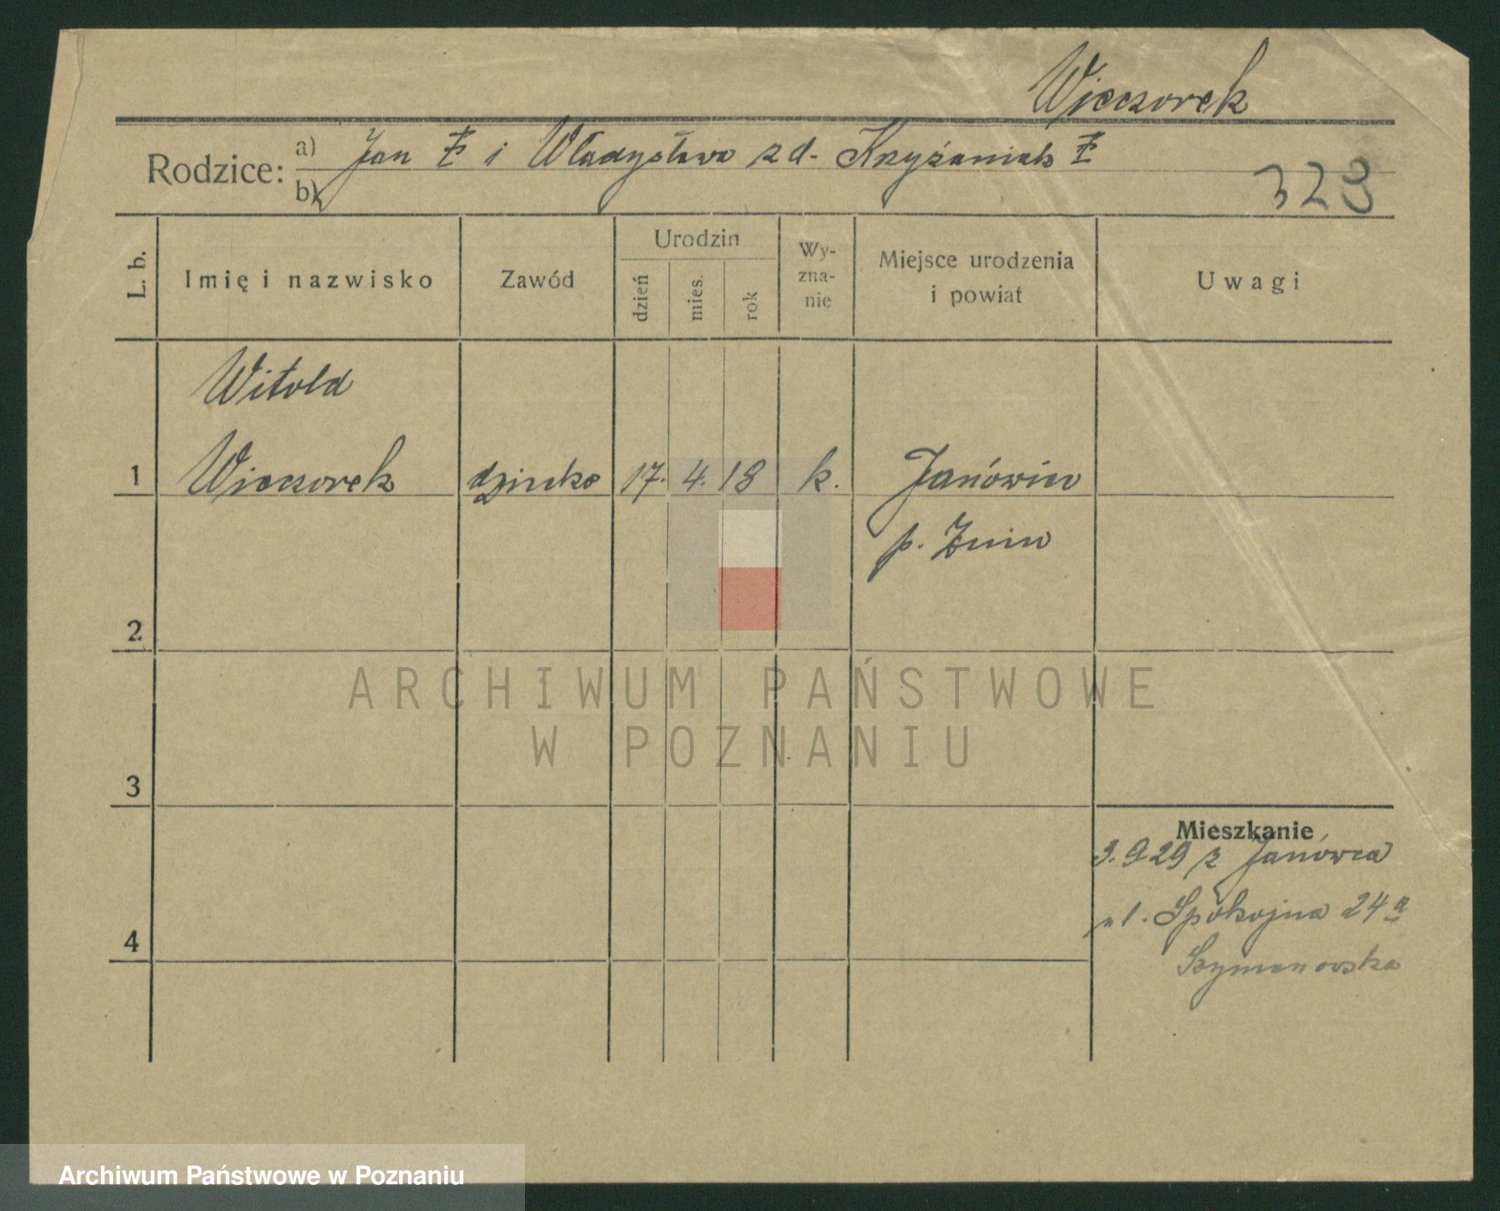 Wieczorek
Rodzice: a) Jan ‡ i Władysława z d. Krzyżaniak ‡
b)
328
L. b.
Imię i nazwisko
Zawód
Urodzin
dzień
mies.
rok
Wy-
zna-
nie
Miejsce urodzenia
i powiat
Uwagi
Witold
1 Wieczorek dziecko 17. 4. 18 k. Janówiec
p. Żnin
2
3
4
Mieszkanie
3.9.29 z Janówca
ul. Spokojna 24a
Szymanowska
ARCHIWUM PAŃSTWOWE
W POZNANIU
Archiwum Państwowe w Poznaniu